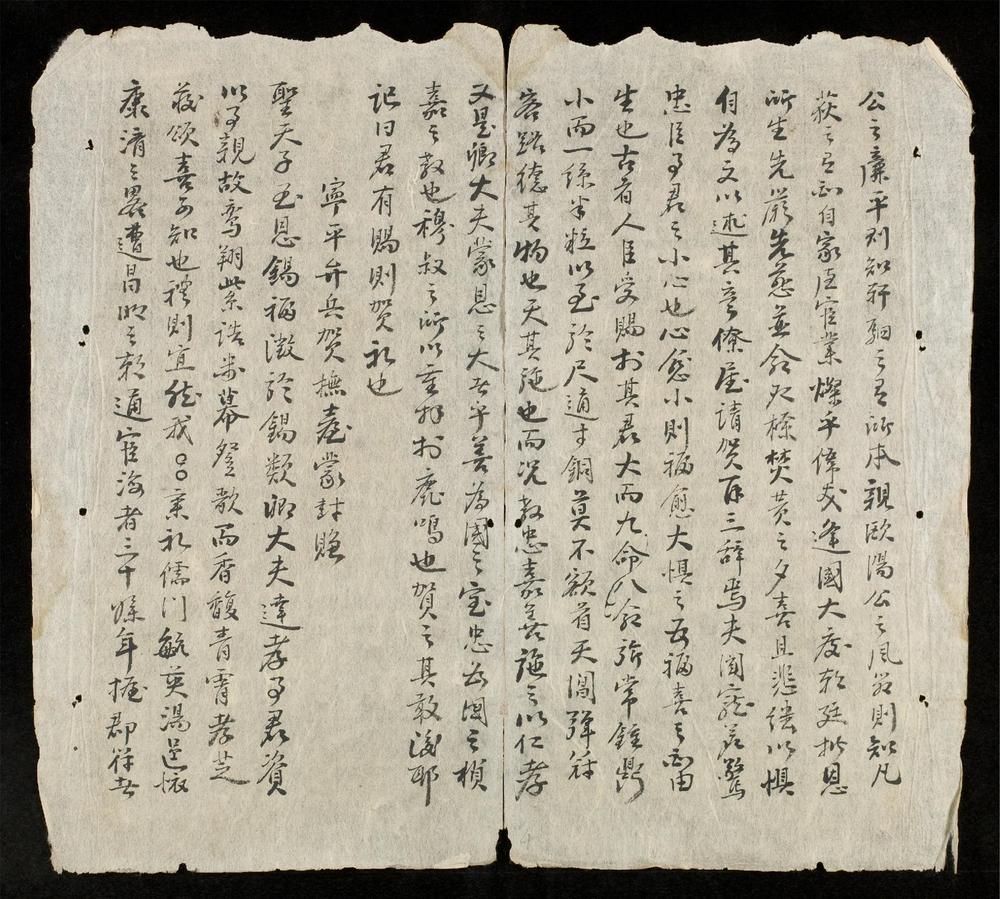 公之廉平則知軒駟之有所本親歐陽公之風翁則知凡
荻之有自家臣官業燦乎偉矣逢國大慶朝廷推恩
所生先嚴先慈並命如樣焚黃之夕喜且悲繼以懼
自為文以述其意僚屬請賀再三辭焉夫聞寵若驚
忠臣事君之小心也心愈小則福愈大懼之為福喜之由
生也古者人臣受賜於其君大而九命八命旂常鍾鼎
小而一絲半粒以至於尺適寸銅莫不額首天閽彈冠
客路德其物也天其施也而況教忠嘉善施之以仁孝
又是卿大夫蒙恩之大者乎善為國之宝忠為國之楨
嘉之教也穆叔之所以重拜於鹿鳴也賀之其敢後耶
記曰君有賜則賀礼也
寧平弁兵賀撫臺蒙封贈
聖天子至恩錫福激於錫類卿大夫達孝事君資
以事親故鸞翔紫誥米幕登歌而香馥青霄孝芝
茲頌喜可知也禮則宜然我〇〇業礼儒門毓英湯邑
康清之畧遭昌明之朝適宦海者三十餘年握郡符